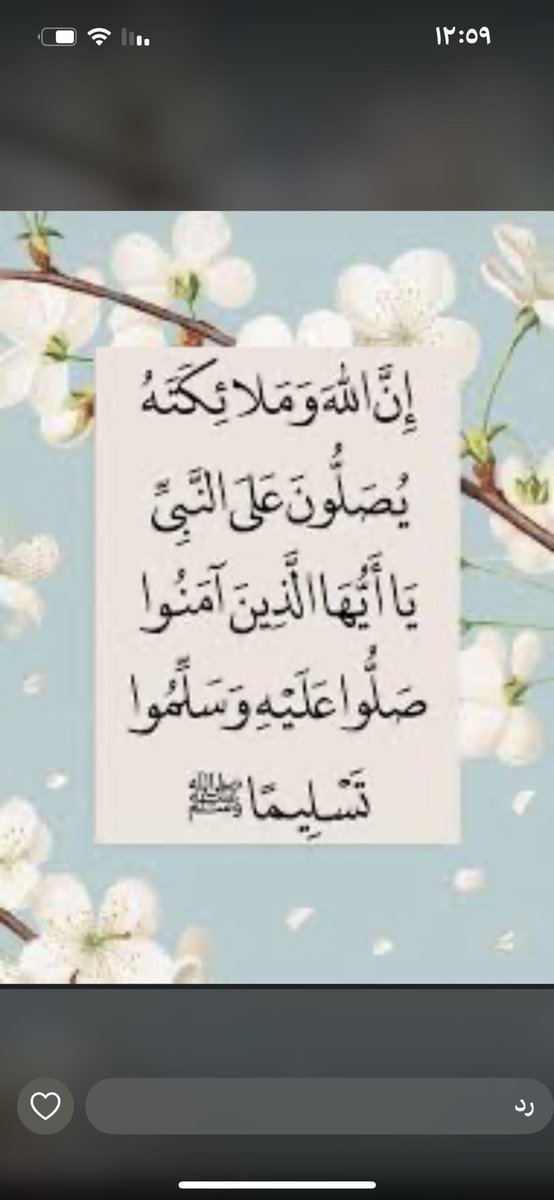 ١٢:٥٩
إِنَّ اللَّهَ وَمَلَائِكَتَهُ
يُصَلُّونَ عَلَى النَّبِيِّ
يَا أَيُّهَا الَّذِينَ آمَنُوا
صَلُّوا عَلَيْهِ وَسَلِّمُوا
تَسْلِيمًا ﷺ
رد